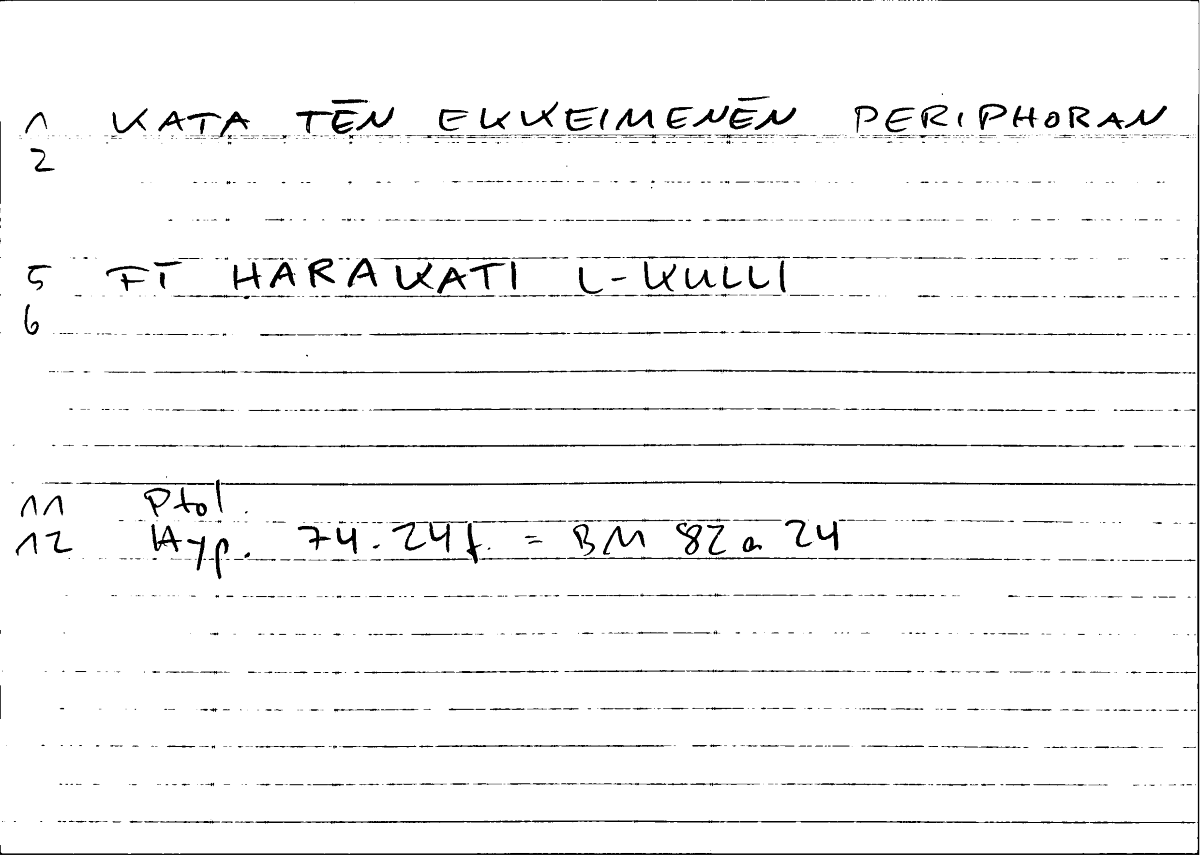 1 KATA TĒN EKKEIMENĒN PERIPHORAN
2
5 FĪ HARAKATI L-KULLI
6
11 Ptol.
12 Hyp. 74.24f. = BM 82a 24